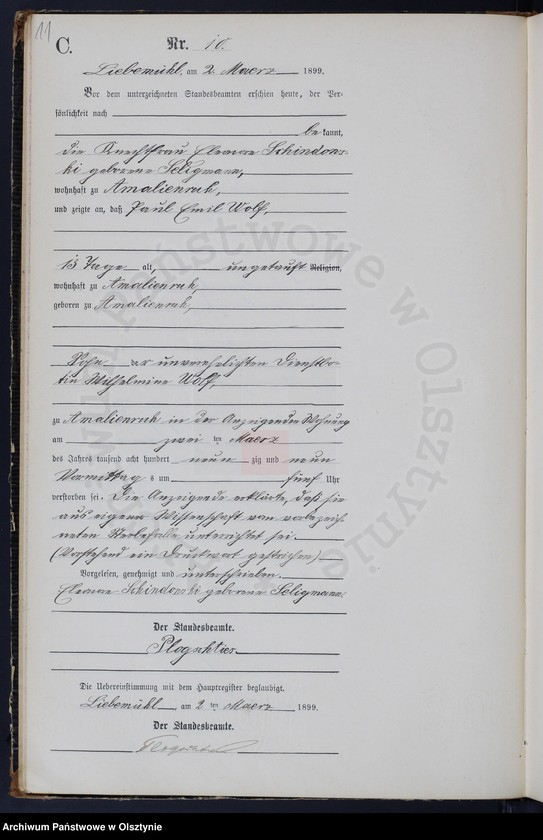 11
C.
Nr. 10.
Liebemühl, am 2. Maerz 1899.
Vor dem unterzeichneten Standesbeamten erschien heute, der Per-
sönlichkeit nach
bekannt,
die Knechtfrau Eleonore Schindows-
ki geborene Seligmann,
wohnhaft zu Amalienruh,
und zeigte an, daß Paul Emil Wolf,
13 Tage alt, ungetauft Religion,
wohnhaft zu Amalienruh,
geboren zu Amalienruh,
Sohn der unverehelichten Dienstbo-
tin Wilhelmine Wolf,
zu Amalienruh in der Anzeigenden Wohnung
am zwei ten Maerz
des Jahres tausend acht hundert neun zig und neun
Vormittag s um fünf Uhr
verstorben sei. Die Anzeigende erklärte, daß sie
aus eigener Wissenschaft von vorbezeich-
neten Sterbefalle unterrichtet sei.
(Vorstehend ein Druckwort gestrichen)
Vorgelesen, genehmigt und unterschrieben.
Eleonore Schindowski geborene Seligmann.
Der Standesbeamte.
Plogschties
Die Uebereinstimmung mit dem Hauptregister beglaubigt.
Liebemühl, am 2 ten Maerz 1899.
Der Standesbeamte.
Archiwum Państwowe w Olsztynie